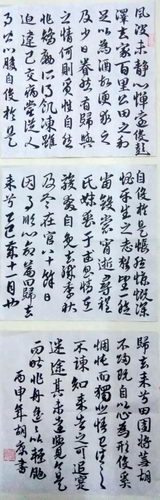 風波未静心憚遠役彭
澤去家百里公田之利
足以為酒故便求之
及少日眷然有歸與
之情何則質性自然
非矯勵所得飢凍雖
切違己交病嘗從人
事皆口腹自役於是
自役於是悵然慷慨深
愧平生之志猶望一稔
當斂裳宵逝尋程
氏妹喪于武昌情在
駿奔自免去職仲秋
及冬在官八十餘日
因事順心命篇曰歸去
來兮乙巳歲十一月也
歸去來兮田園將蕪胡
不歸既自以心為形役奚
惆悵而獨悲悟已往之
不諫知来者之可追實
迷途其未遠覺今是
而昨非舟遥遥以輕颺
丙申年胡書